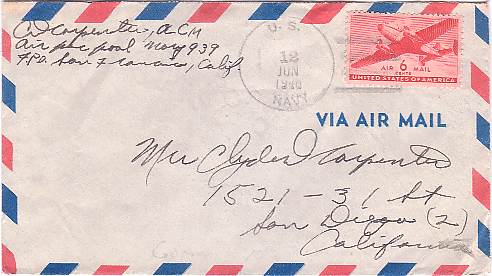 CW Carpenter, A.C.M.
Air pac pool Navy 939
F.P.O. San Francisco, Calif.
U. S.
12
JUN
NAVY
AIR 6 MAIL
CENTS
UNITED STATES OF AMERICA
VIA AIR MAIL
Mrs Clyde W Carpenter
1521 - 31 St
San Diego (2)
California